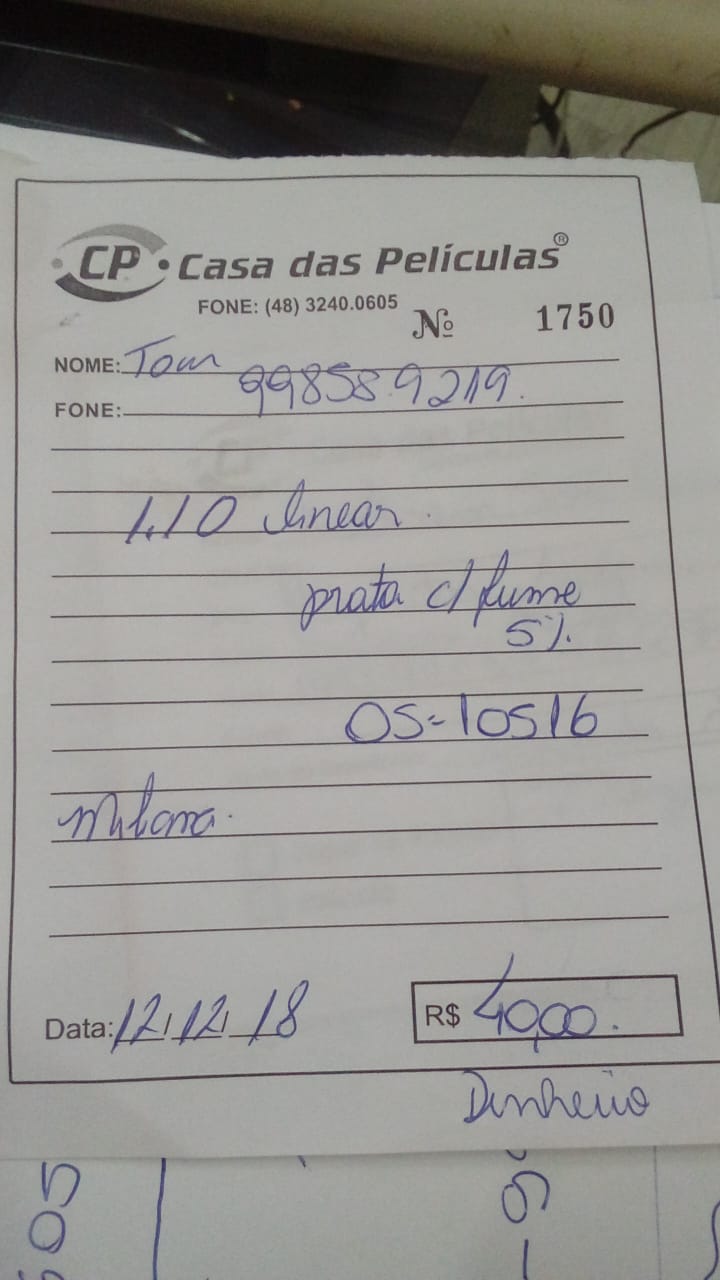 CP • Casa das Películas®
FONE: (48) 3240.0605
Nº 1750
NOME: Tom
FONE: 99858.9219.
1.10 linear.
prata c/ fume
5%.
OS=10516
Data: 12/12/18
R$ 40,00.
Dinheiro
505